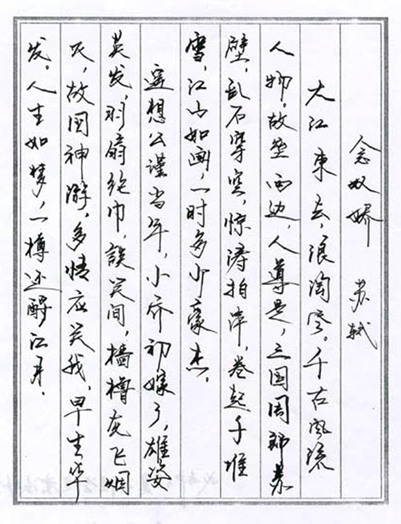 念奴娇 苏轼
大江東去,浪淘尽。千古風流
人物,故垒西边,人道是,三国周郎赤
壁,乱石穿空,惊涛拍岸,卷起千堆
雪,江山如画,一时多少豪杰。
遥想公瑾当年,小乔初嫁了,雄姿
英发,羽扇纶巾,談笑间,樯橹灰飞烟
灭,故国神游,多情应笑我,早生华
发,人生如梦,一樽还酹江月。